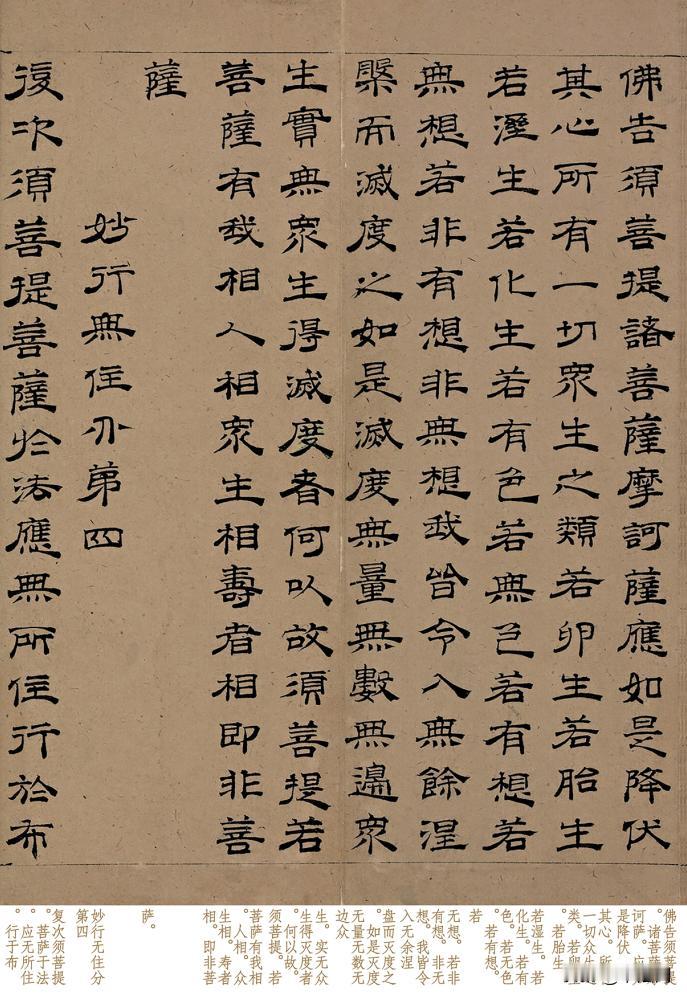 佛告須菩提諸菩薩摩訶薩應如是降伏
其心所有一切眾生之類若卵生若胎生
若溼生若化生若有色若無色若有想若
無想若非有想非無想我皆令入無餘涅
槃而滅度之如是滅度無量無數無邊眾
生實無眾生得滅度者何以故須菩提若
菩薩有我相人相眾生相壽者相即非菩
薩
妙行無住分第四
復次須菩提菩薩於法應無所住行於布
佛告须菩提
。诸菩萨
诃萨。应
是降伏
其心。所
一切众生
类。若卵
。若胎生
若湿生。若
化生。若有
色。若无色
。若有想。
若
无想。若非
有想。非无
想。我皆令
入无余涅
盘而灭度之
。如是灭度
无量无数无
边众
生。实无众
生得灭度者
。何以故。
须菩提。若
菩萨有我相
。人相。众
生相。寿者
相。即非菩
萨。
妙行无住分
第四
复次须菩提
。菩萨于法
。应无所住
。行于布